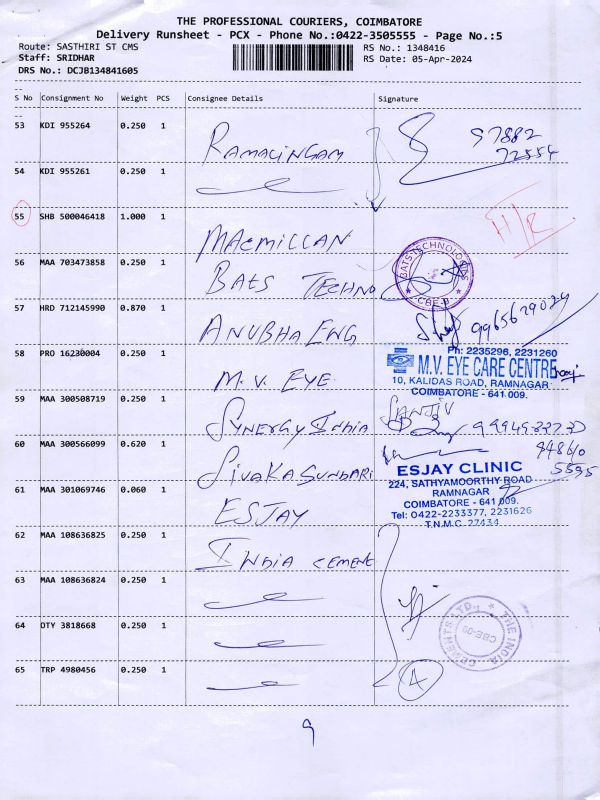 THE PROFESSIONAL COURIERS, COIMBATORE
Delivery Runsheet - PCX - Phone No.:0422-3505555 - Page No.:5
Route: SASTHIRI ST CMS
RS No.: 1348416
Staff: SRIDHAR
RS Date: 05-Apr-2024
DRS No.: DCJB134841605
S No Consignment No Weight PCS Consignee Details Signature
53 KDI 955264 0.250 1 RAMALINGAM 97882
72554
54 KDI 955261 0.250 1
55 SHB 500046418 1.000 1 MACMILLAN
56 MAA 703473858 0.250 1 BATS TECHNO BATS TECHNOLOGIES CBE-9
57 HRD 712145990 0.870 1 ANUBHA ENG 9965629024
58 PRO 16230004 0.250 1 M.V. EYE
Ph: 2235296, 2231260
M.V. EYE CARE CENTRE
10, KALIDAS ROAD, RAMNAGAR
COIMBATORE - 641 009.
59 MAA 300508719 0.250 1 SYNERGY INDIA SANJIV
60 MAA 300566099 0.620 1 SIVAKASUNDARI
61 MAA 301069746 0.060 1 ESJAY
ESJAY CLINIC
224, SATHYAMOORTHY ROAD
RAMNAGAR
COIMBATORE - 641 009.
Tel: 0422-2233377, 2231626
T.N.M.C. 27434
62 MAA 108636825 0.250 1 INDIA CEMENT
63 MAA 108636824 0.250 1
64 OTY 3818668 0.250 1 THE INDIA CEMENTS LTD. CBE-09
65 TRP 4980456 0.250 1 4
9